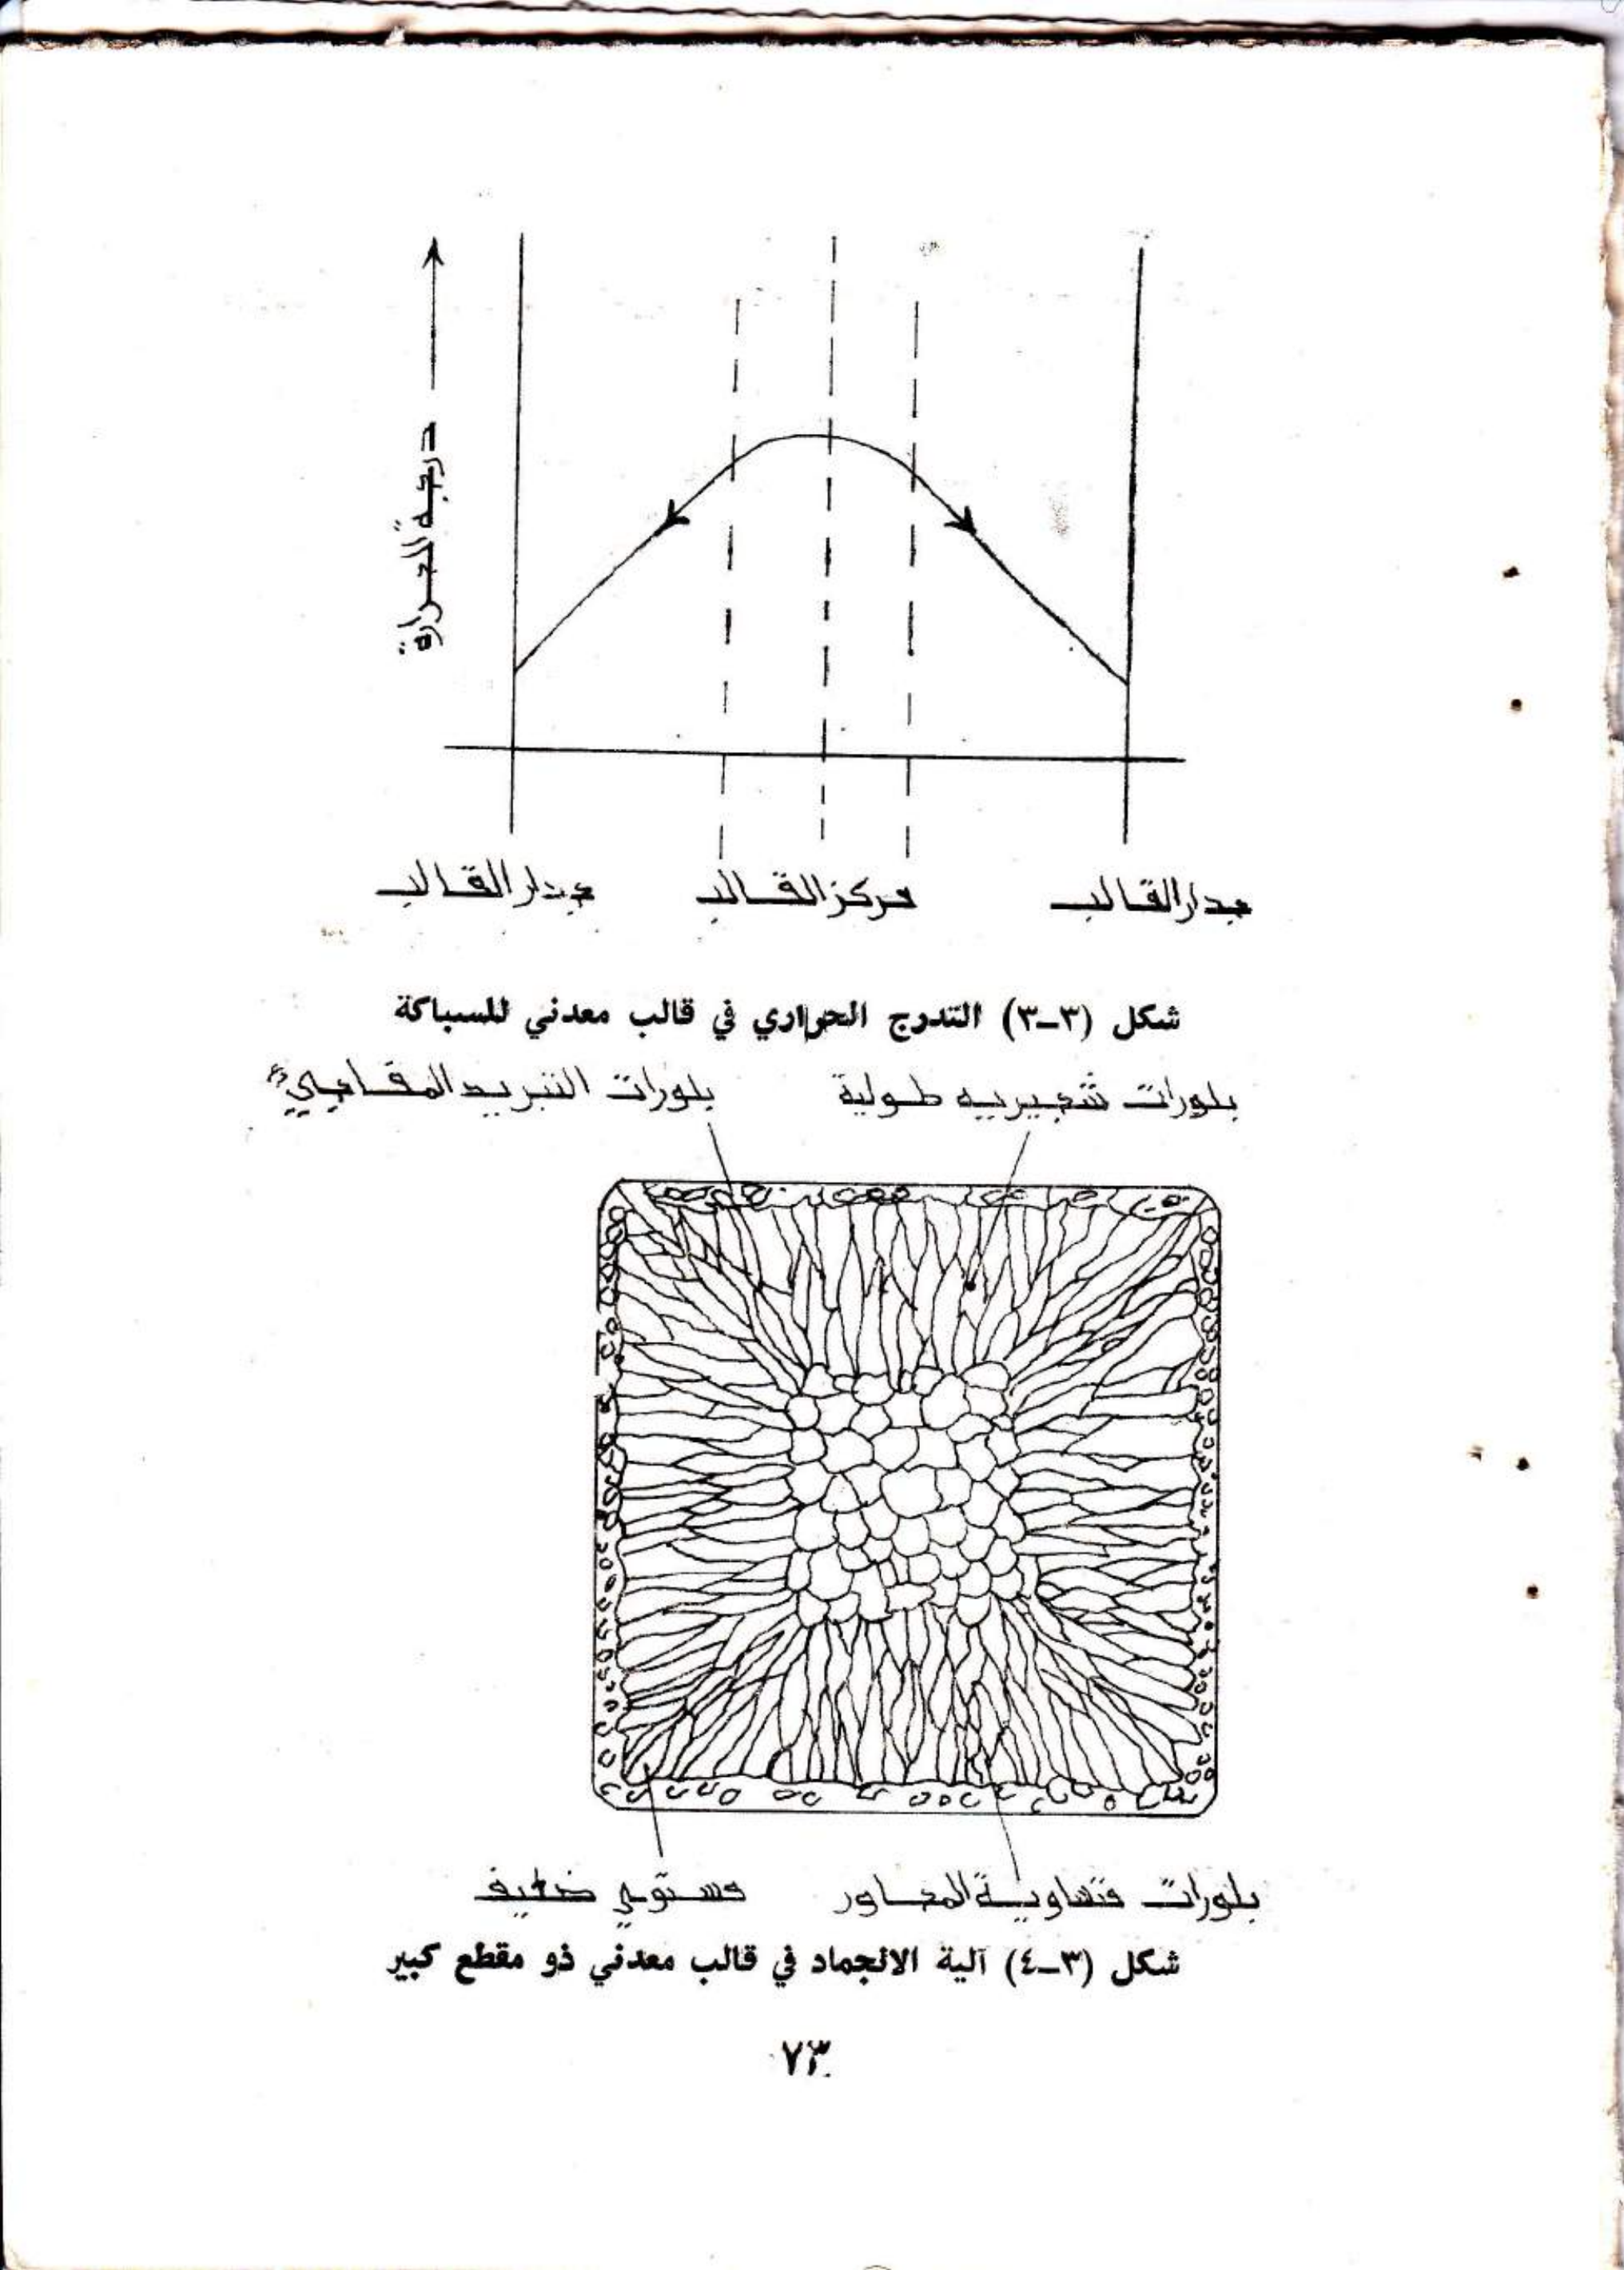 درجة الحرارة
جدار القالب مركز القالب جدار القالب
شكل (٣-٣) التدرج الحراري في قالب معدني للسباكة
بلورات شجيرية طولية بلورات التبريد المفاجيء
بلورات متساوية المحاور مستوي ضعيف
شكل (٣-٤) آلية الانجماد في قالب معدني ذو مقطع كبير
٧٣